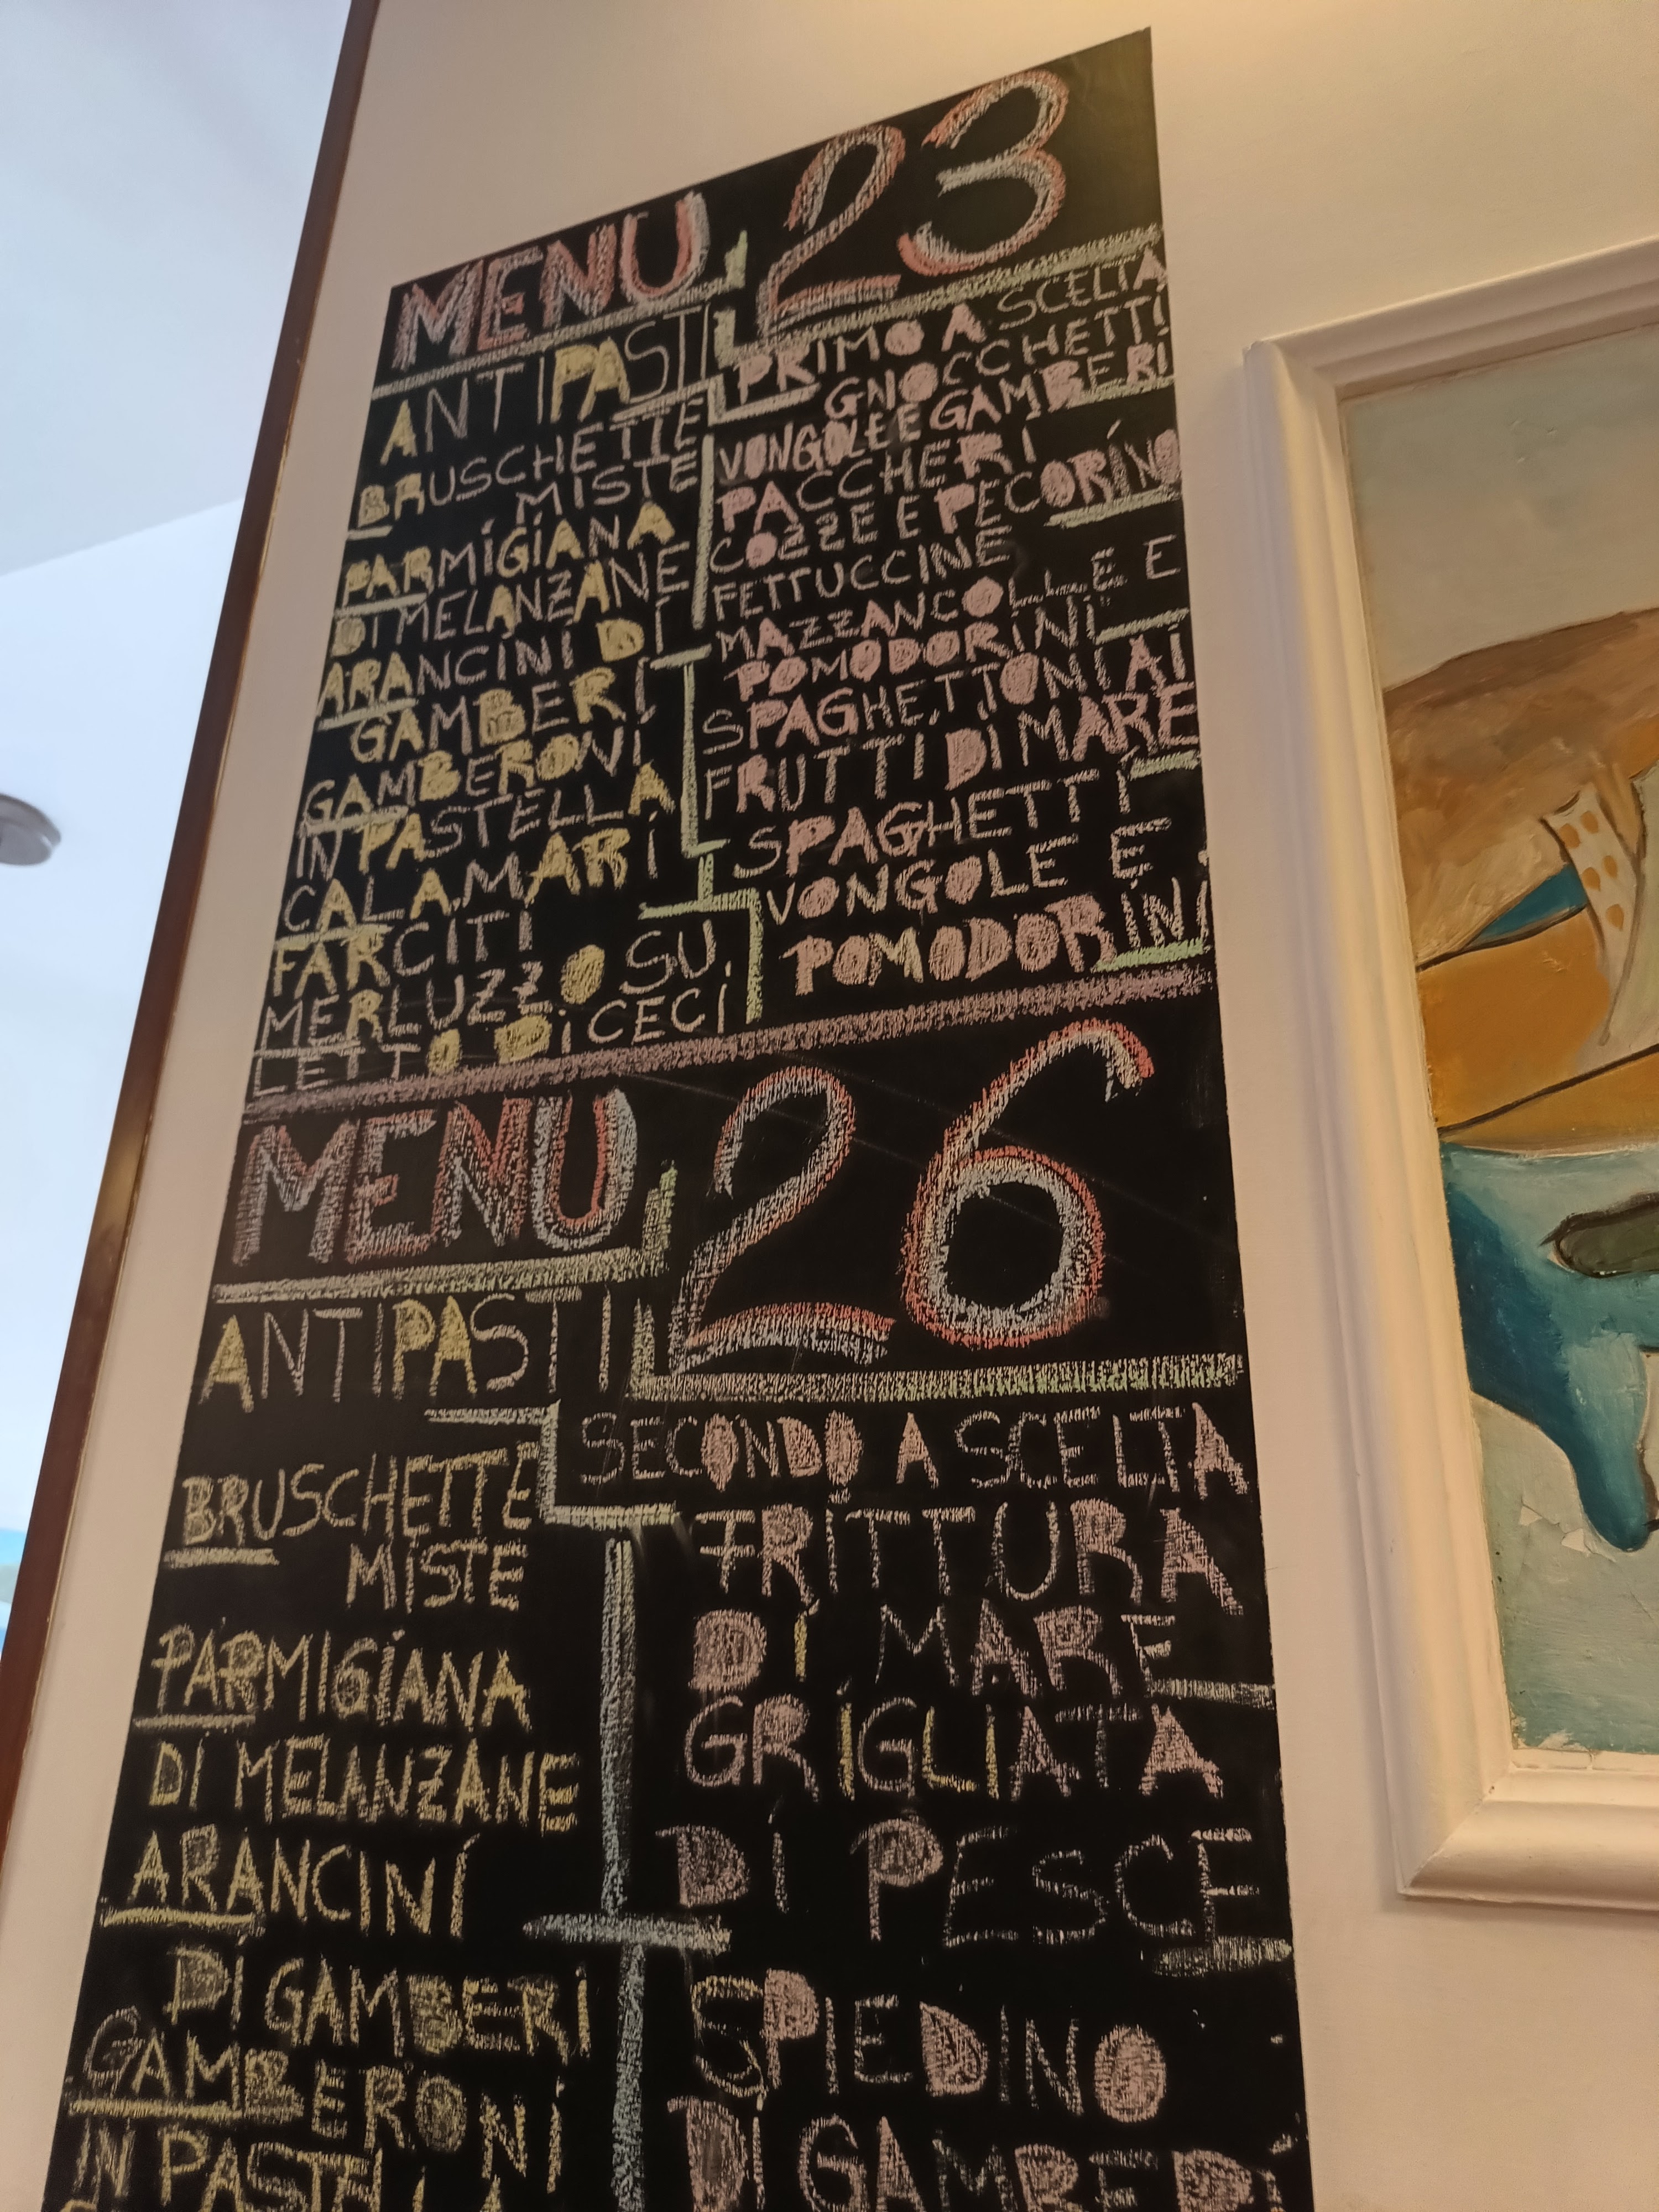 MENU 23
ANTIPASTI
BRUSCHETTE
MISTE
PARMIGIANA
DI MELANZANE
ARANCINI DI
GAMBERI
GAMBERONI
IN PASTELLA
CALAMARI
FARCITI
MERLUZZO SU
LETTO DI CECI
PRIMO A SCELTA
GNOCCHETTI
VONGOLE E GAMBERI
PACCHERI
COZZE E PECORINO
FETTUCCINE
MAZZANCOLLE E
POMODORINI
SPAGHETTONI AI
FRUTTI DI MARE
SPAGHETTI
VONGOLE E
POMODORINI
MENU 26
ANTIPASTI
BRUSCHETTE
MISTE
PARMIGIANA
DI MELANZANE
ARANCINI
DI GAMBERI
GAMBERONI
IN PASTELLA
SECONDO A SCELTA
FRITTURA
DI MARE
GRIGLIATA
DI PESCE
SPIEDINO
DI GAMBERI